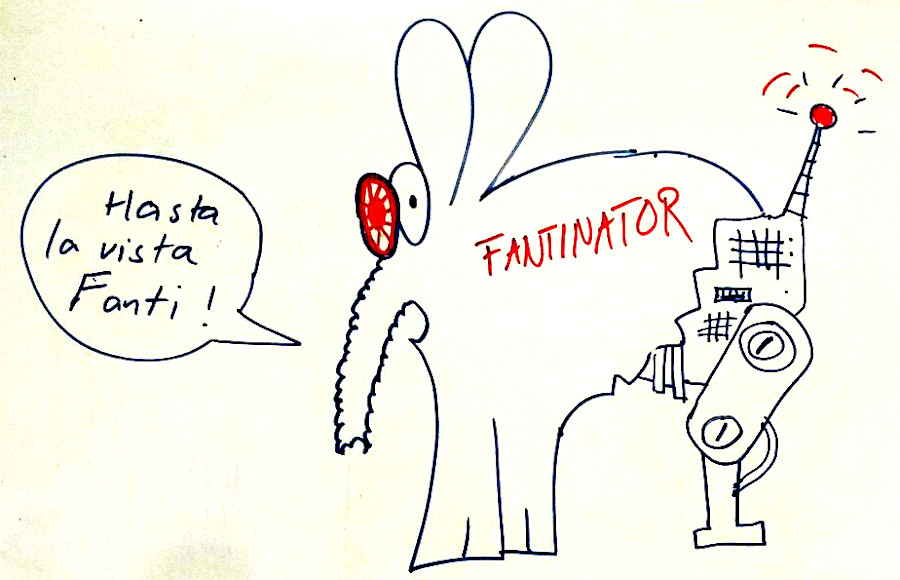 Hasta
la vista
Fanti!
FANTINATOR